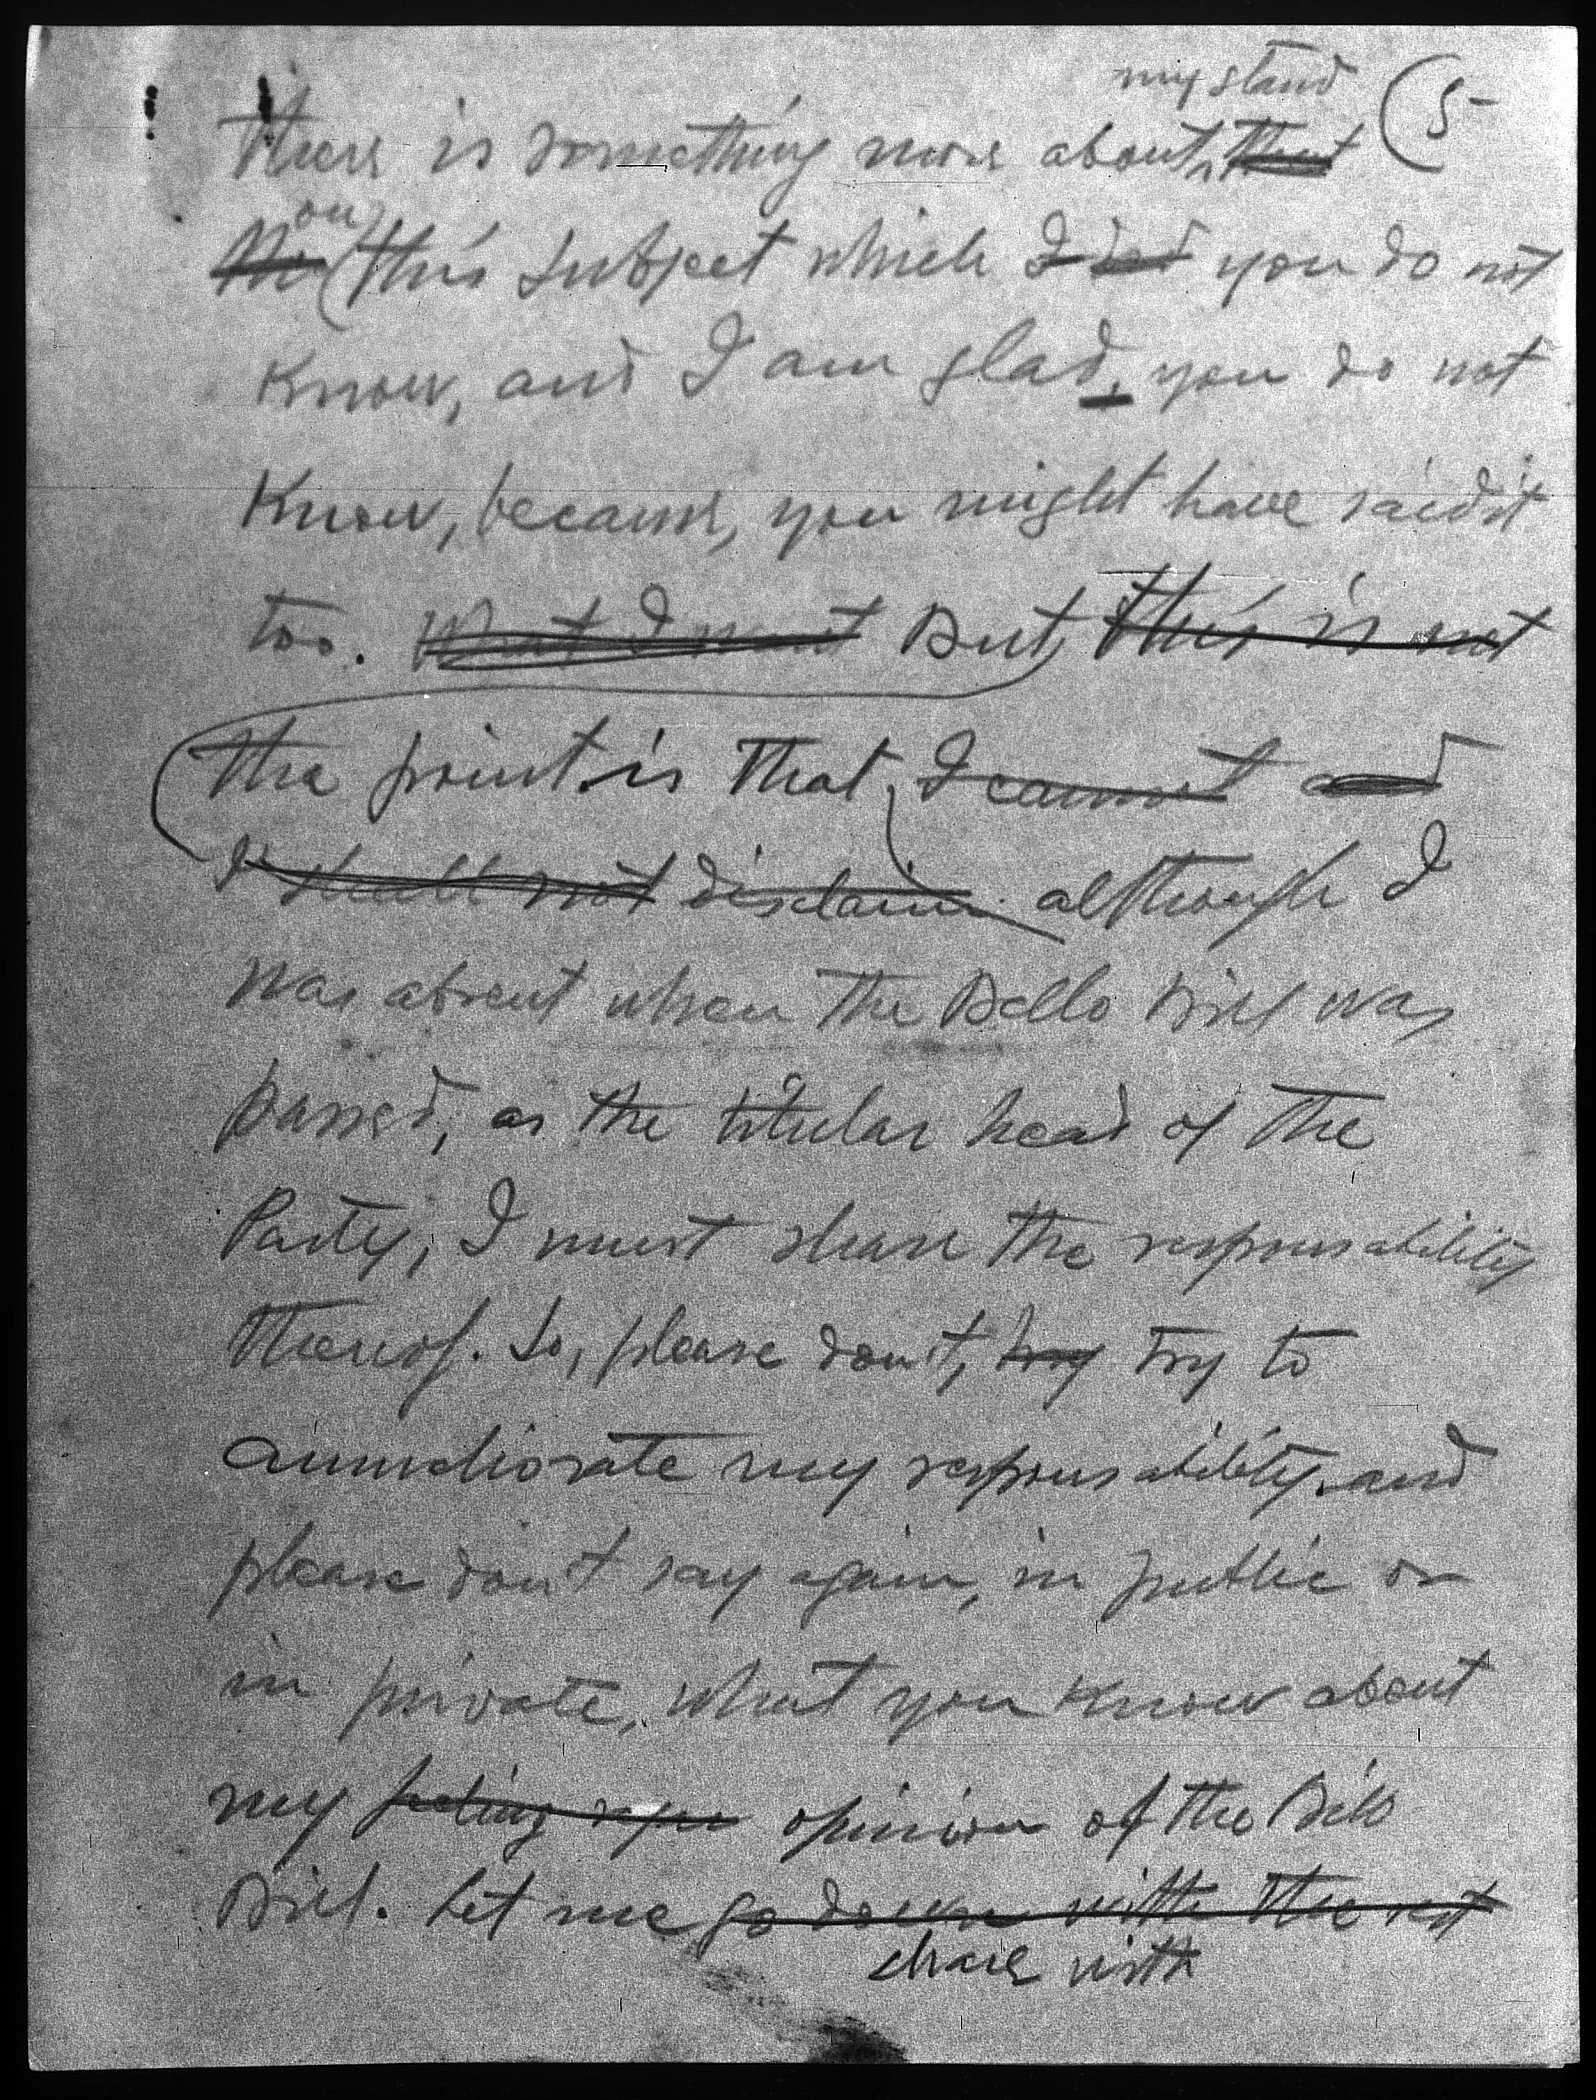 my stand (5-
There is something more about, that
on
the this subject which I did you do not
Know, and I am glad, you do not
Know, because, you might have said it
too. What I want But, this is not
the point is that, I cannot and
I shall not disclaim although I
was absent when the Bello Bill was
passed, as the titular head of the
Party, I must share the responsability
thereof. So, please don't, try to
ammeliorate my responsability. and
please don't say again, in public or
in private, what you know about
my feeling opinion of the Bello
Bill. Let me go down with the rest
share with